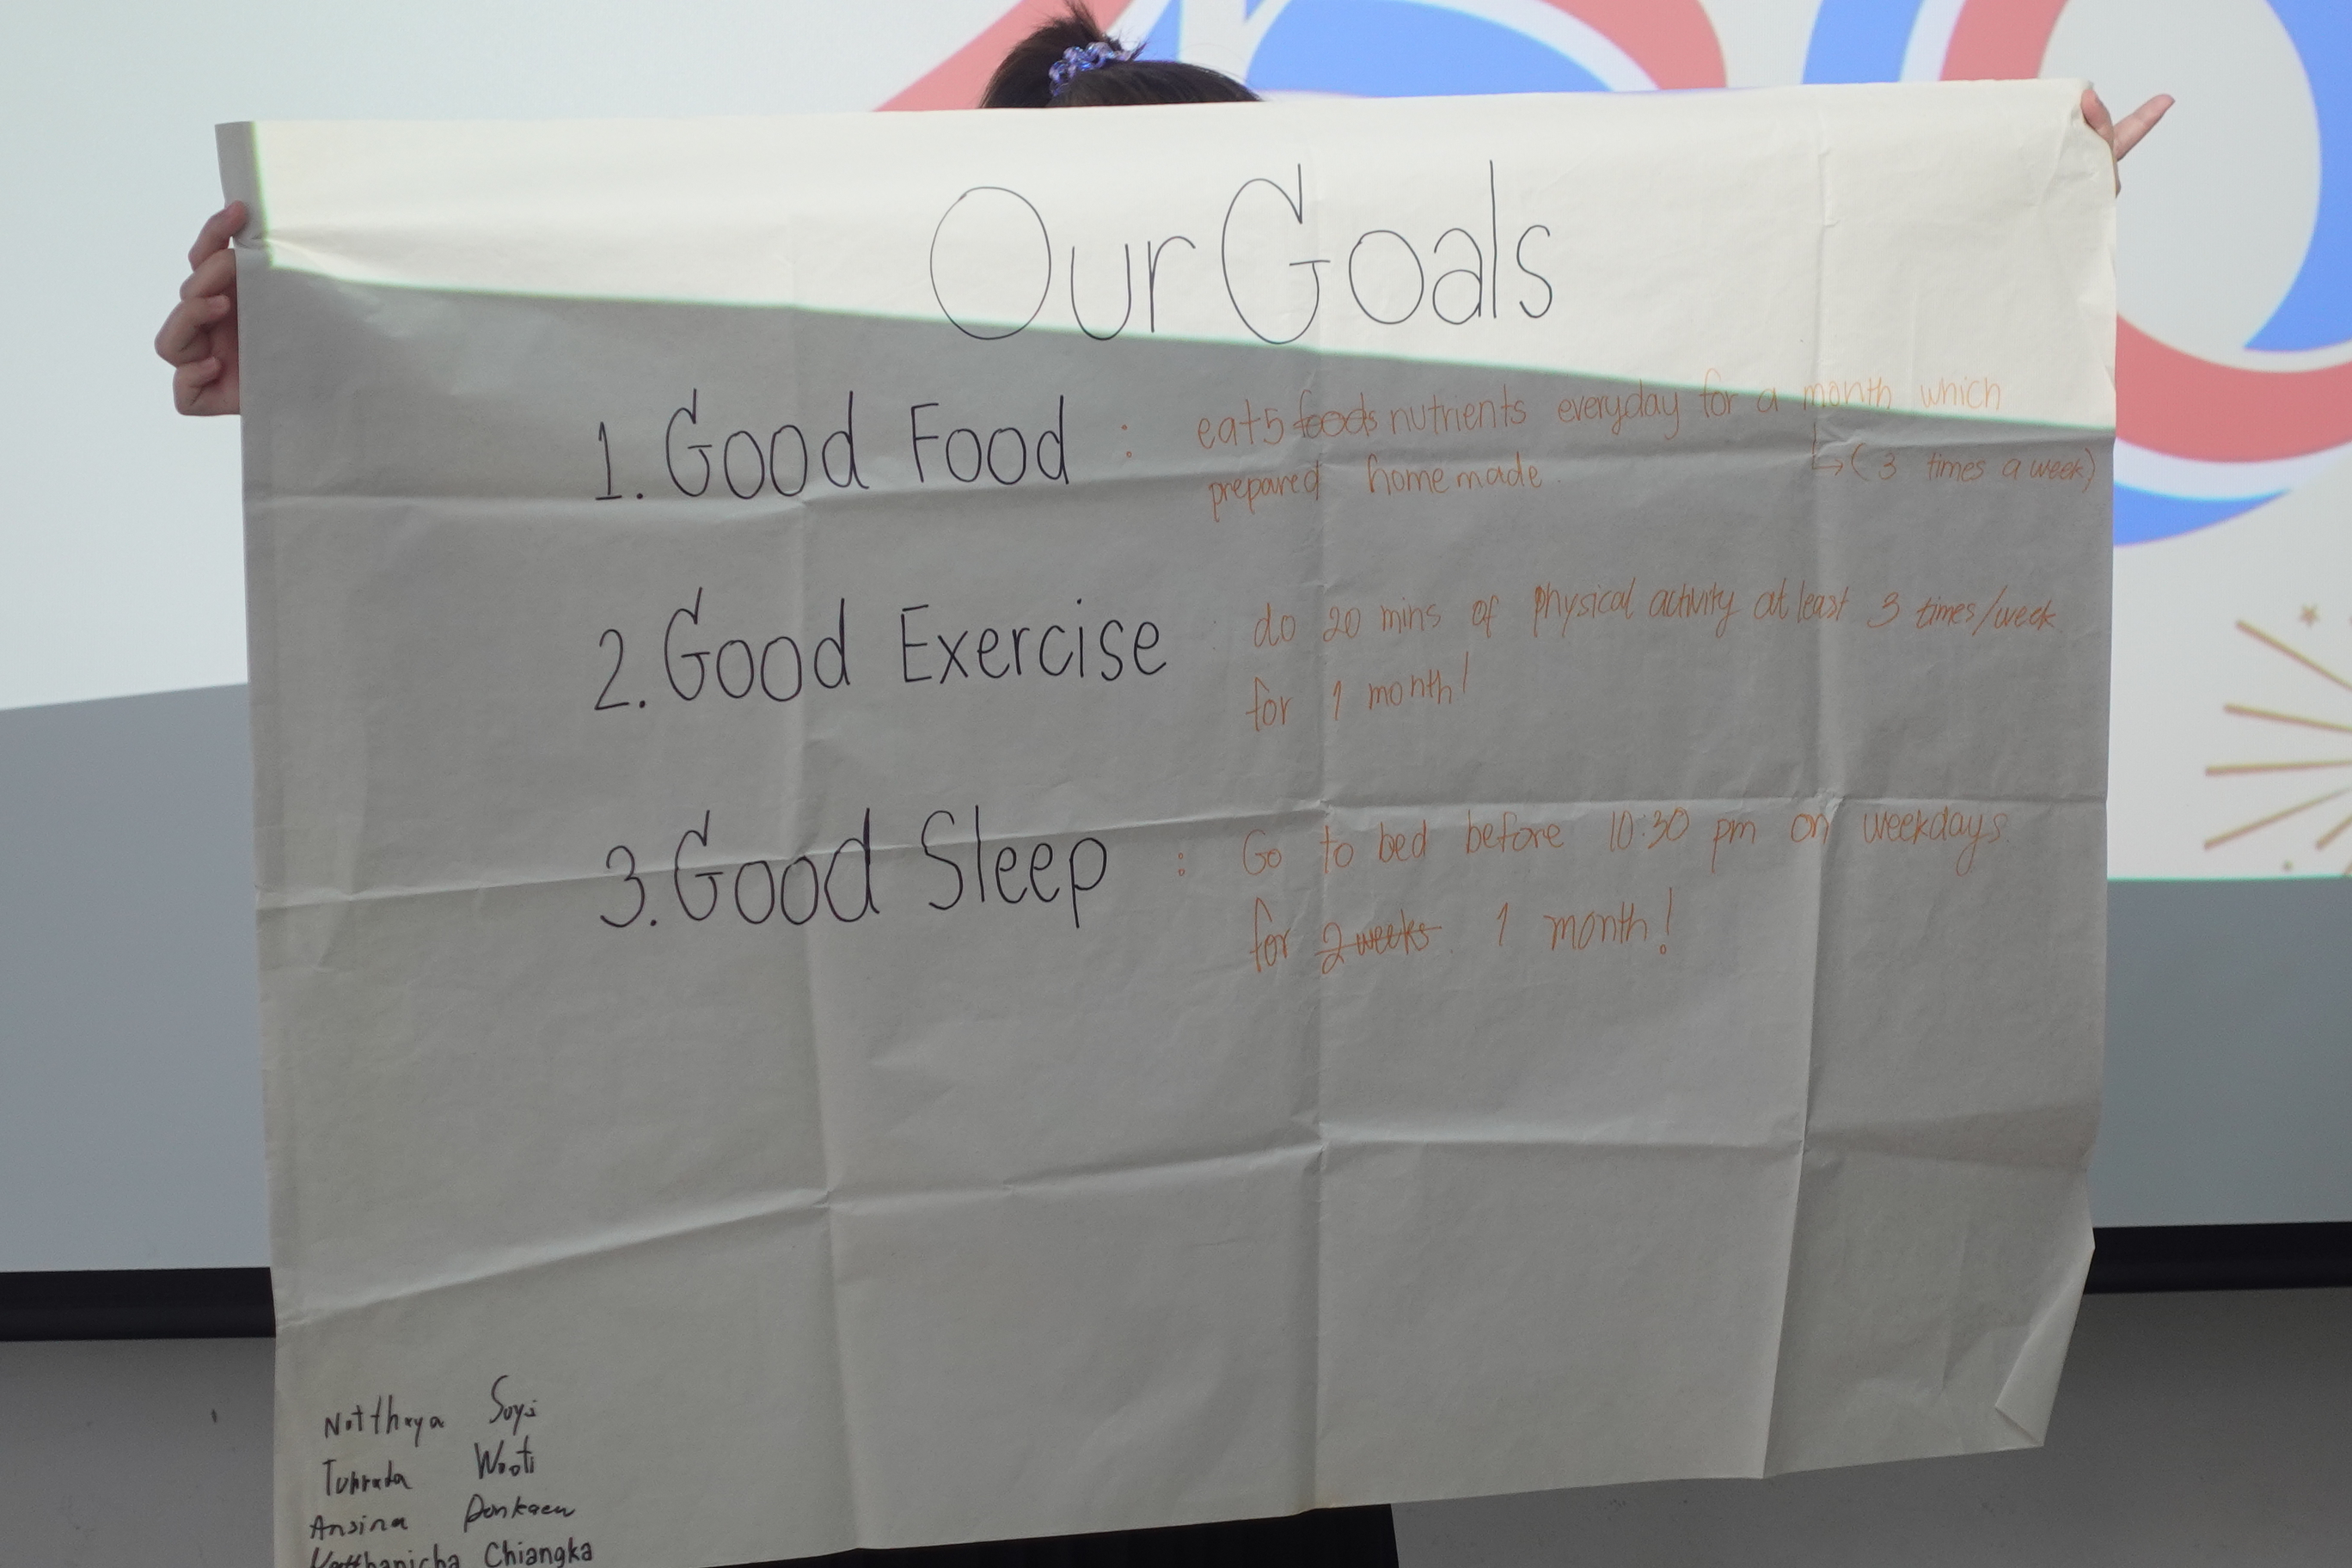 Our Goals
1. Good Food : eat 5 foods nutrients everyday for a month which
↳ (3 times a week)
prepared homemade.
2. Good Exercise : do 20 mins of physical activity at least 3 times/week
for 1 month!
3. Good Sleep : Go to bed before 10:30 pm on weekdays.
for 2 weeks. 1 month!
Natthaya
Ansina Donkaew
Chiangka